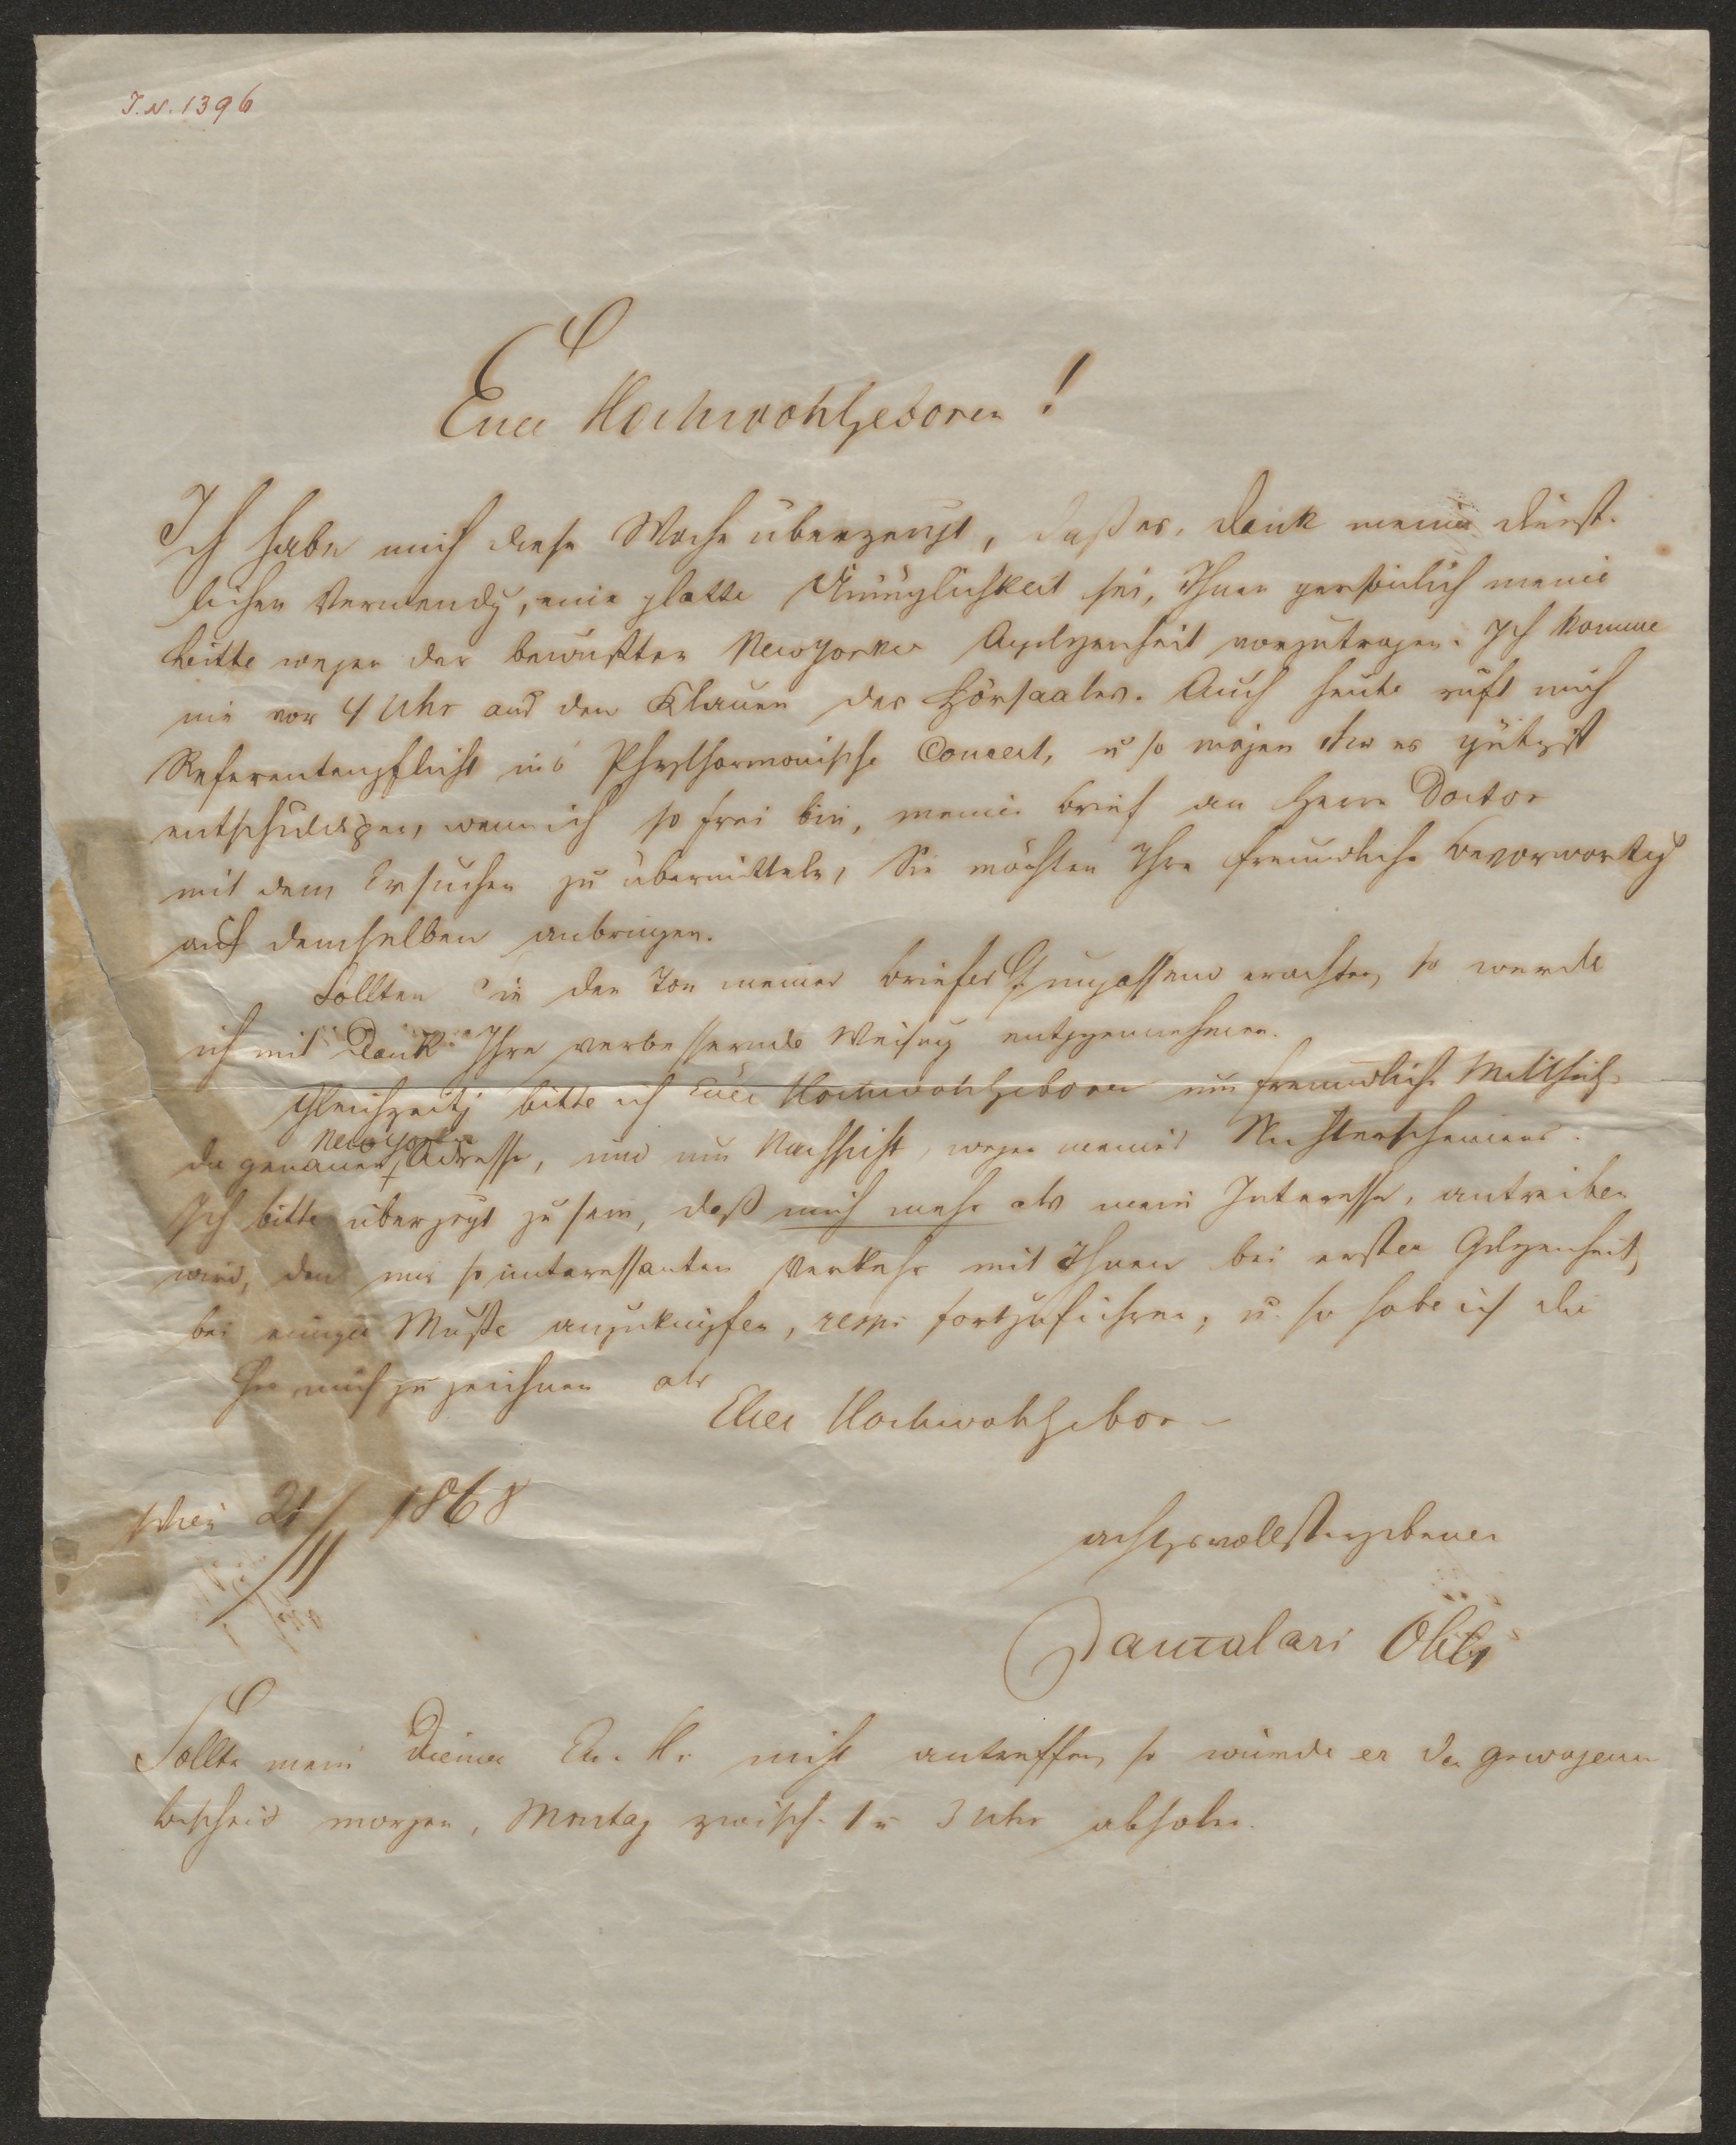 I.N. 1396
Euer Hochwohlgeboren!
Ich habe mich diese Woche überzeugt, daß es, Dank meiner dienst-
lichen Verwendg, eine glatte Unmöglichkeit sei, Ihnen persönlich meine
Bitte wegen der bewußten NewYorker Angelegenheit vorzutragen. Ich komme
nie vor 4 Uhr aus den Klauen des Hörsaales. Auch heute ruft mich
Referentenpflicht ins Phylharmonische Concert, u so mögen Sie es gütigst
entschuldigen, wenn ich so frei bin, meinen Brief an Herrn Doctor
mit dem Ersuchen zu übermitteln, Sie möchten Ihre freundliche Bevorwortg
auf demselben anbringen.
Sollten Sie den Ton meines Briefes unpassend erachten, so werde
ich mit Dank Ihre verbessernde Weisung entgegennehmen.
Gleichzeitig bitte ich Euer Hochwohlgeboren um freundliche Mittheilg
der genauen NewYorker Adresse, und um Nachsicht, wegen meines Nichterscheinens.
Ich bitte überzeugt zu sein, daß mich mehr als mein Interesse, antreiben
wird, den mir so interessanten Verkehr mit Ihnen bei erster Gelegenheit,
bei einiger Muße anzuknüpfen, resp: fortzuführen, u. so habe ich die
Ehre mich zu zeichnen als
Euer Hochwohlgebor
Wien 21/11 1868
achtgsvollstergebener
Sollte mein Diener Eu. H. nicht antreffen, so würde er den gewogenen
Bescheid morgen, Montag zwisch. 1 u 3 Uhr abholen.